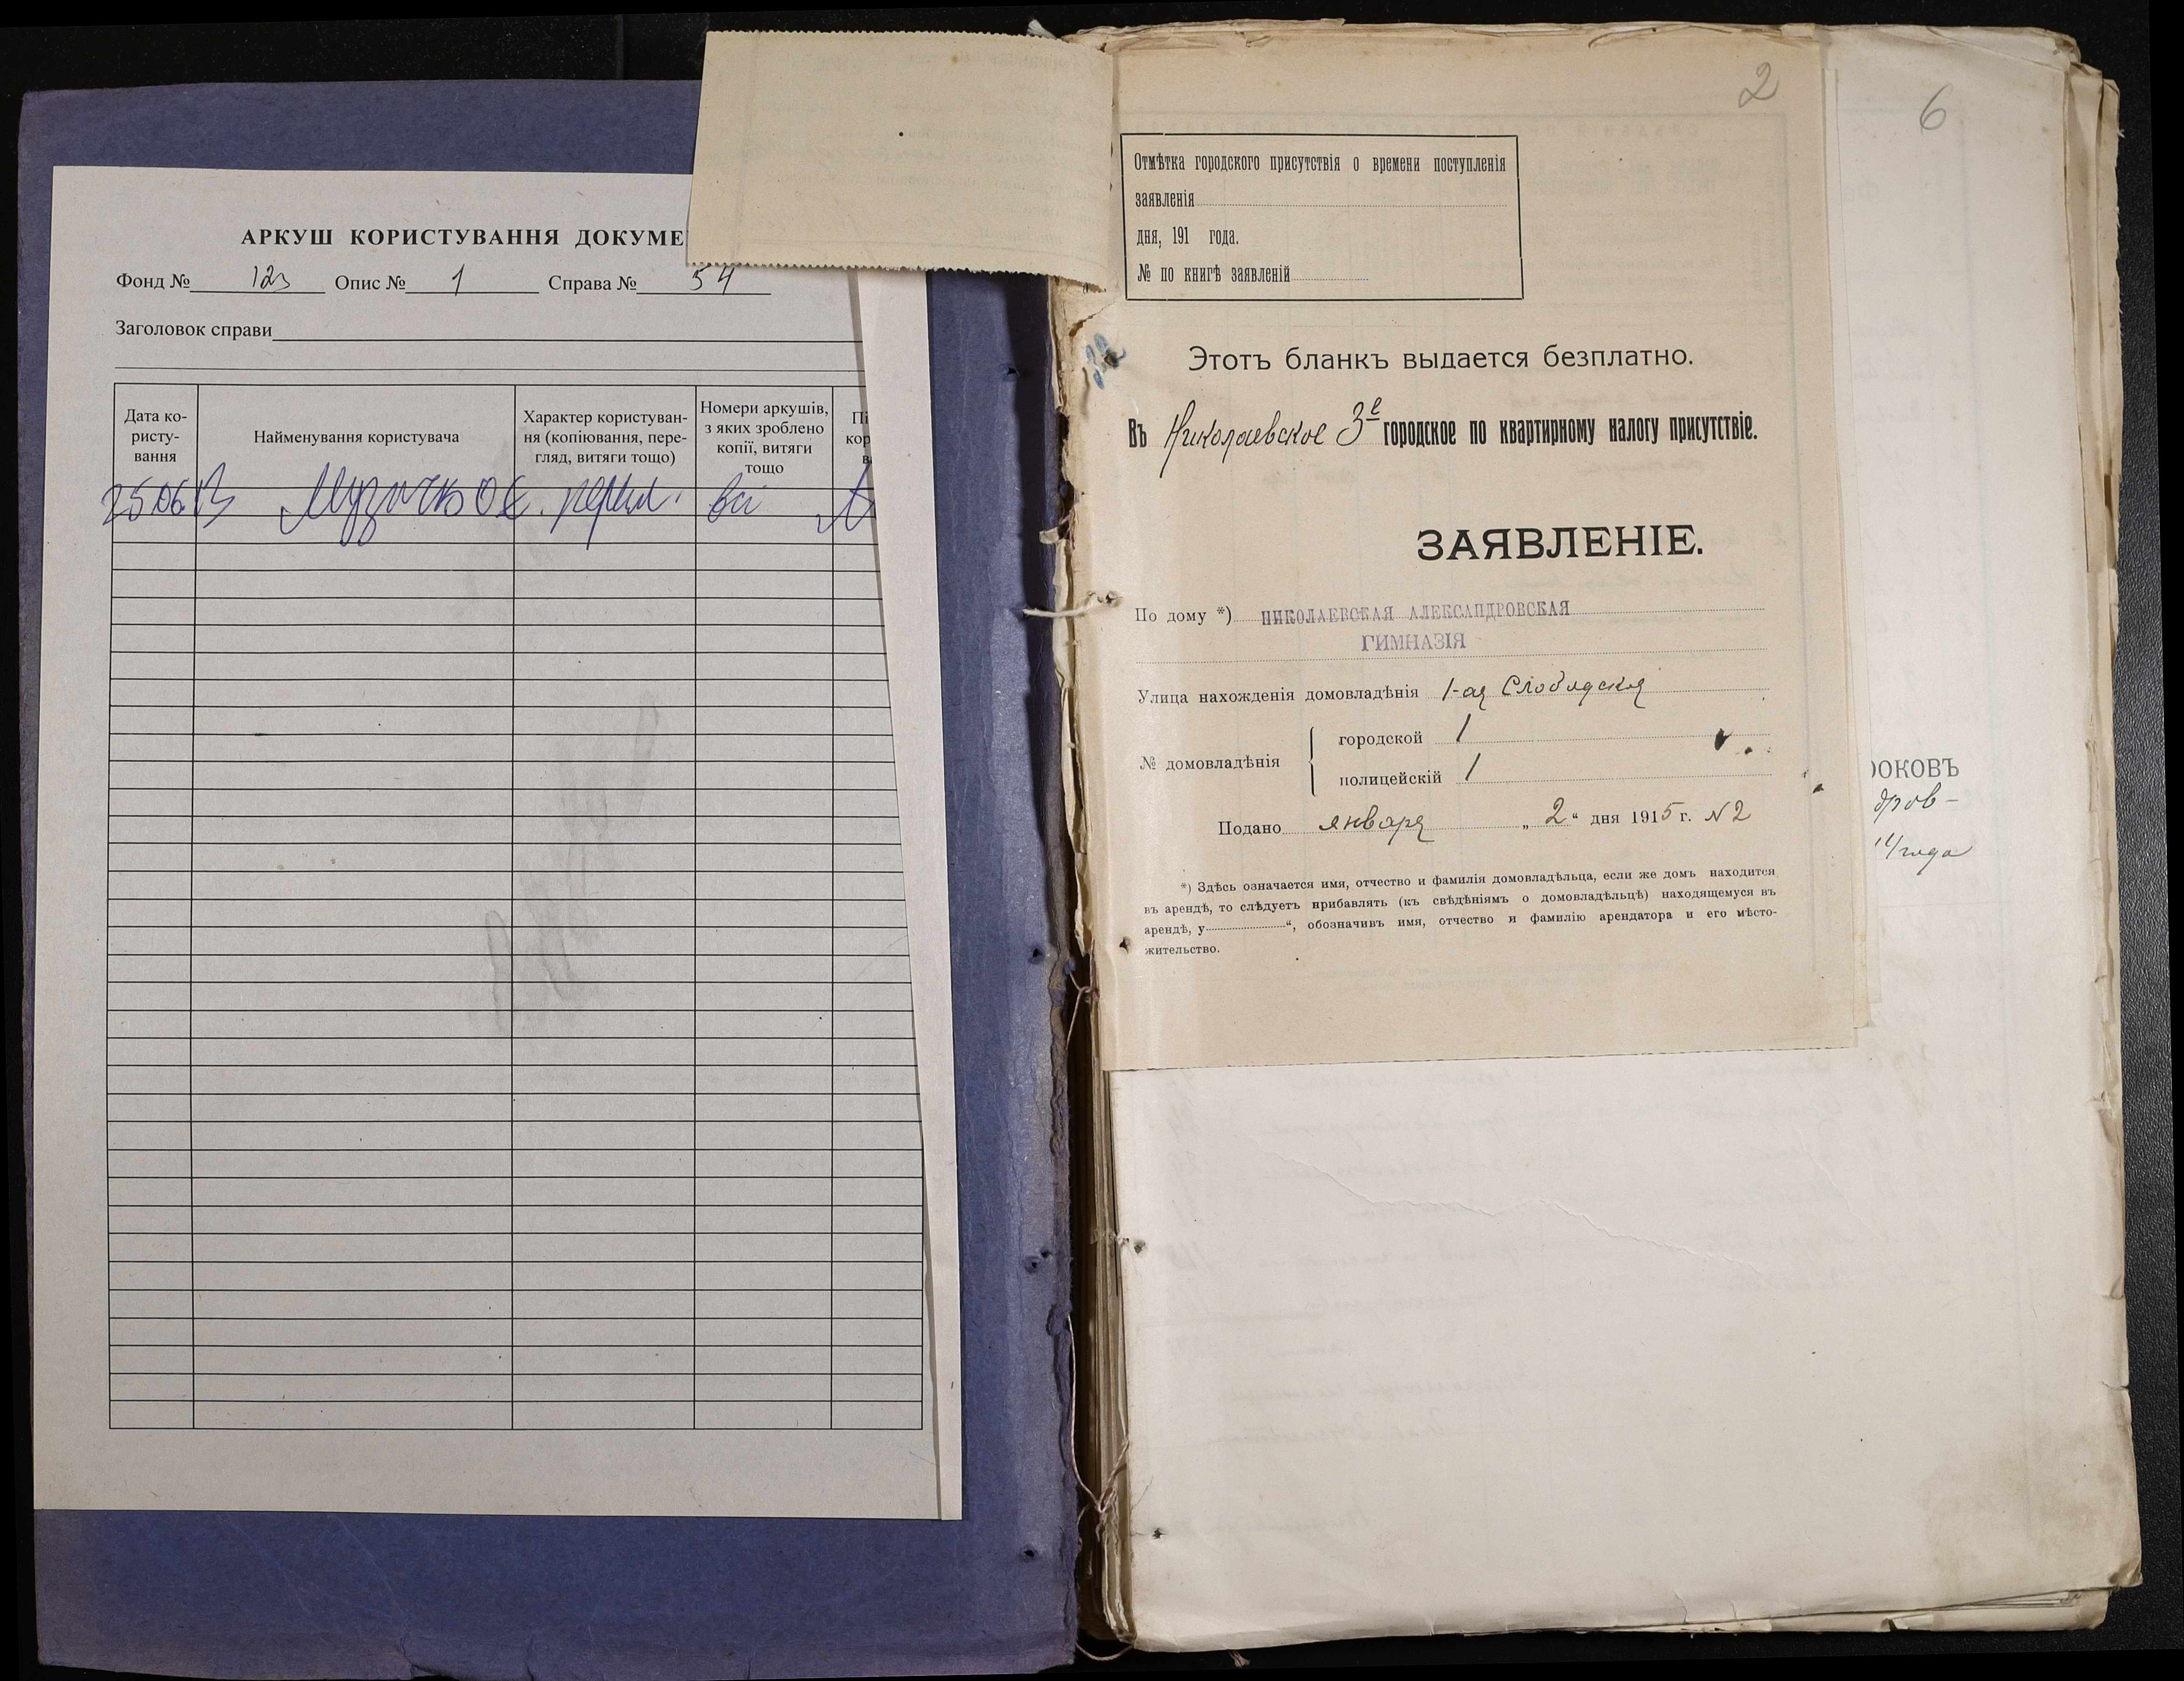 АРКУШ КОРИСТУВАННЯ ДОКУМЕ
Фонд № 123 Опис № 1 Справа № 54
Заголовок справи
Дата ко-
ристу-
вання
Найменування користувача
Характер користуван-
ня (копіювання, пере-
гляд, витяги тощо)
Номери аркушів,
з яких зроблено
копії, витяги
тощо
Пі
кор
в
25.06.13 перегл. всі
2
6
Отмѣтка городского присутствія о времени поступленія
заявленія
дня, 191 года.
№ по книгѣ заявленій
Этотъ бланкъ выдается безплатно.
Въ Николаевское 3е городское по квартирному налогу присутствіе.
ЗАЯВЛЕНІЕ.
По дому *) НИКОЛАЕВСКАЯ АЛЕКСАНДРОВСКАЯ
ГИМНАЗІЯ
Улица нахожденія домовладѣнія 1-ая Слободская
№ домовладѣнія
городской 1
полицейскій 1
Подано января „ 2 “ дня 1915 г. N 2
*) Здѣсь означается имя, отчество и фамилія домовладѣльца, если же домъ находится
въ арендѣ, то слѣдуетъ прибавлять (къ свѣдѣніямъ о домовладѣльцѣ) находящемуся въ
арендѣ, у“, обозначивъ имя, отчество и фамилію арендатора и его мѣсто-
жительство.
РОКОВЪ
дров-
14 года